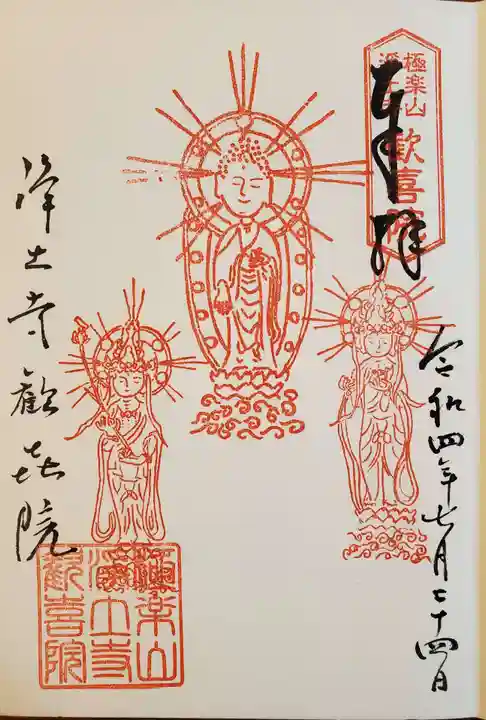 奉拝
極楽山
浄土寺
歓喜院
令和四年七月二十四日
浄土寺歓喜院
極楽山
浄土寺
歓喜院